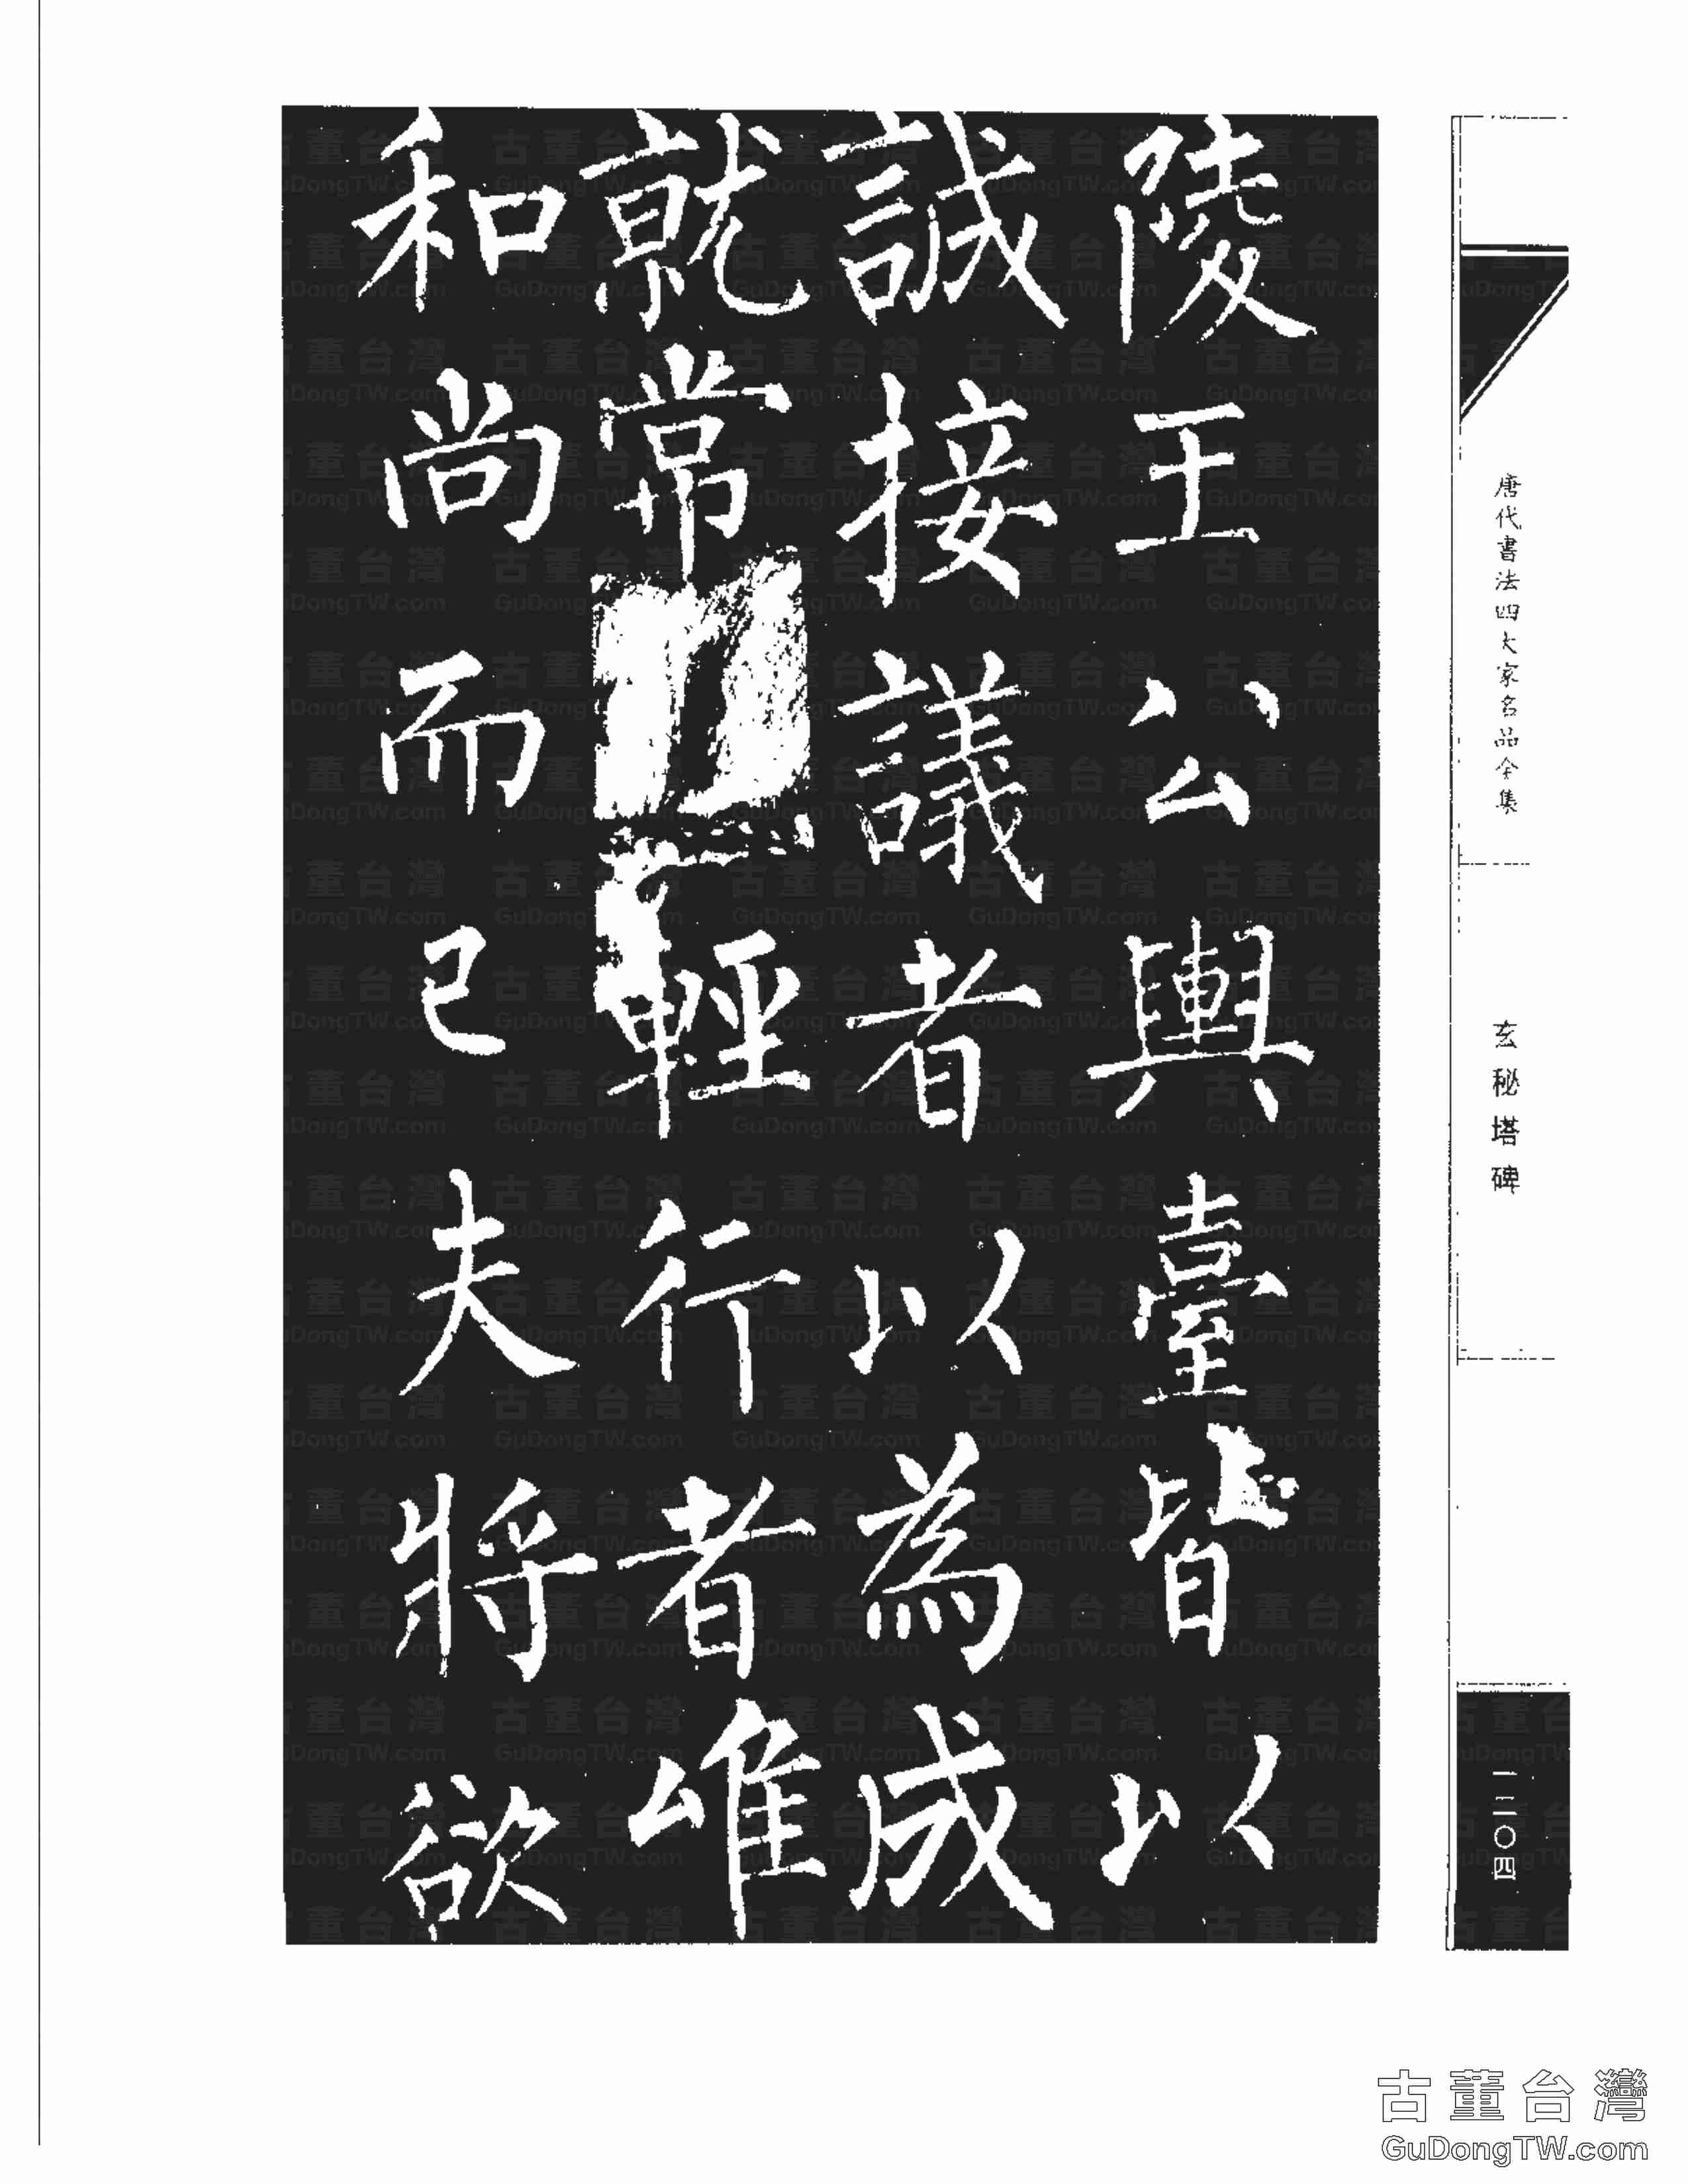 陵王公輿臺皆以
誠接議者以為成
就常輕行者唯
和尚而已夫將欲
唐代書法四大家名品全集
玄秘塔碑
一二〇四
古董台灣
GuDongTW.com